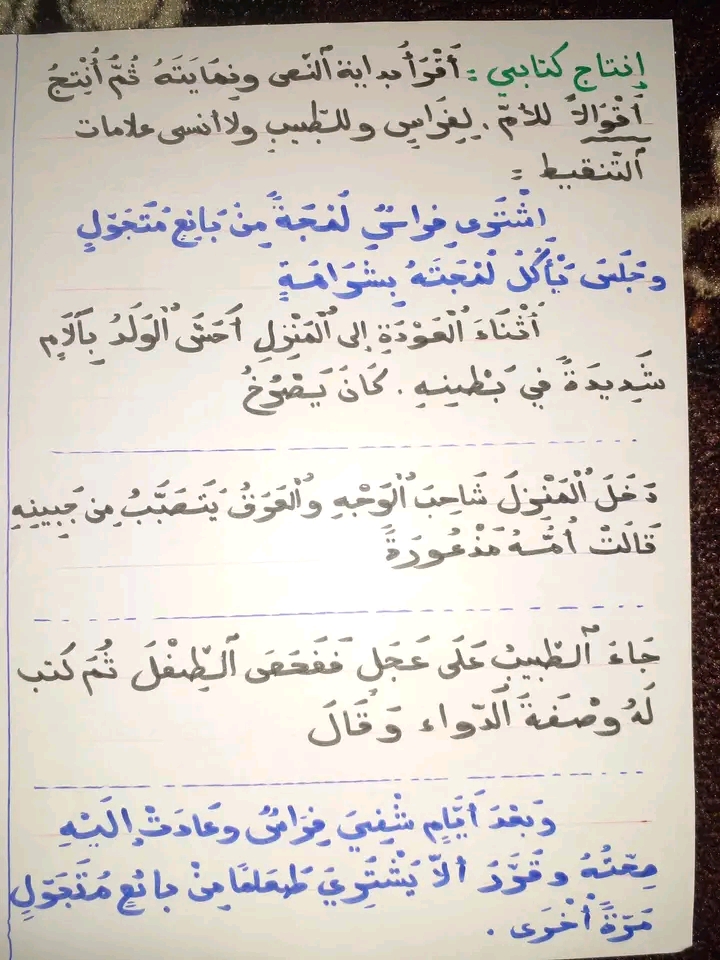 إنتاج كتابي : أَقْرَأُ بداية ٱلنّص ونِهَايَتَهُ ثُمَّ أُنْتِجُ
أَقْوَالاً للأمّ . لِفِرَاسٍ وللطّبيبِ ولا أنسى علامات
ٱلتّنقيط :
اِشْتَرَى فِراسٌ لُمْجَةً مِنْ بَائِعٍ مُتَجَوّلٍ
وجَلَسَ يَأْكُلُ لُمْجَتَهُ بِشَرَاهَةٍ
أَثْنَاءَ ٱلْعَوْدَةِ إلى ٱلْمَنْزِلِ أَحَسَّ ٱلْوَلَدُ بِآلَامٍ
شَدِيدَةً في بَطْنِهِ . كَانَ يَصْرُخُ
دَخَلَ ٱلْمَنْزِلَ شَاحِبَ ٱلْوَجْهِ وٱلْعَرَقُ يَتَصَبَّبُ مِن جَبِينِهِ
قَالَتْ أُمُّهُ مَذْعُورَةً
جَاءَ ٱلطّبيبُ عَلَى عَجَلٍ فَفَحَصَ ٱلطِّفْلَ ثُمَ كتب
لَهُ وصْفَةَ ٱلدّواء وَقَالَ
وَبَعْدَ أَيَّامٍ شُفِيَ فِرَاسٌ وعَادَتْ إِلَيْهِ
صِحّتُهُ وقَرَّرَ ألاّ يَشْتَرِيَ طَعَامًا مِنْ بائعٍ مُتَجَوّلٍ
مَرّةً أُخْرَى .